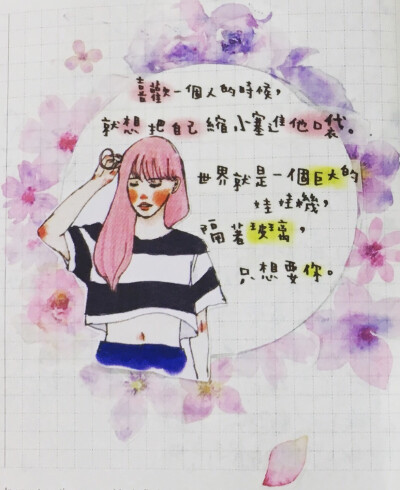 喜歡一個人的時候，
就想把自己縮小塞進他口袋。
世界就是一個巨大的
娃娃機，
隔著玻璃，
只想要你。